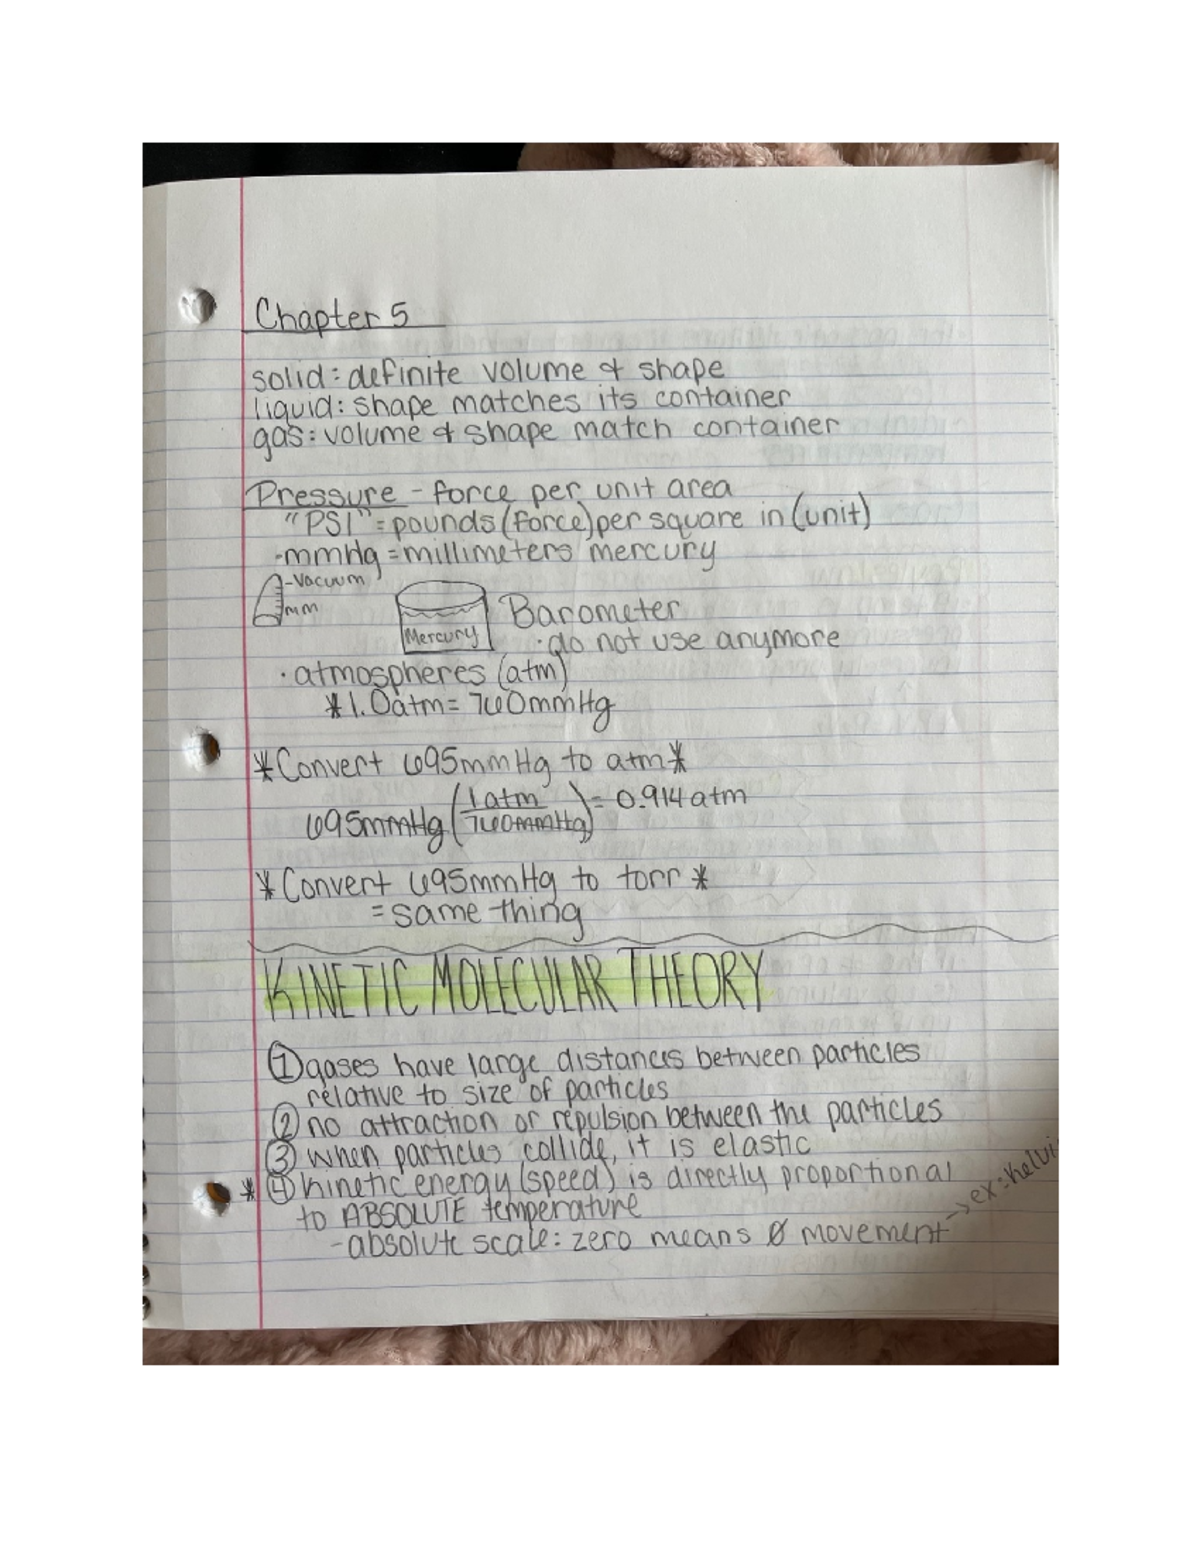 Chapter 5
solid: definite volume & shape
liquid: shape matches its container
gas: volume & shape match container
Pressure - force per unit area
"PSI" = pounds (force) per square in (unit)
-mmHg = millimeters mercury
-Vacuum
mm
Mercury
Barometer
· do not use anymore
· atmospheres (atm)
*1.0atm = 760mmHg
*Convert 695mmHg to atm*
695mmHg (1 atm / 760mmHg) = 0.914 atm
*Convert 695mmHg to torr*
= same thing
KINETIC MOLECULAR THEORY
① gases have large distances between particles
relative to size of particles
② no attraction or repulsion between the particles
③ when particles collide, it is elastic
* ④ kinetic energy (speed) is directly proportional
to ABSOLUTE temperature
- absolute scale: zero means Ø movement
→ ex: kelvi